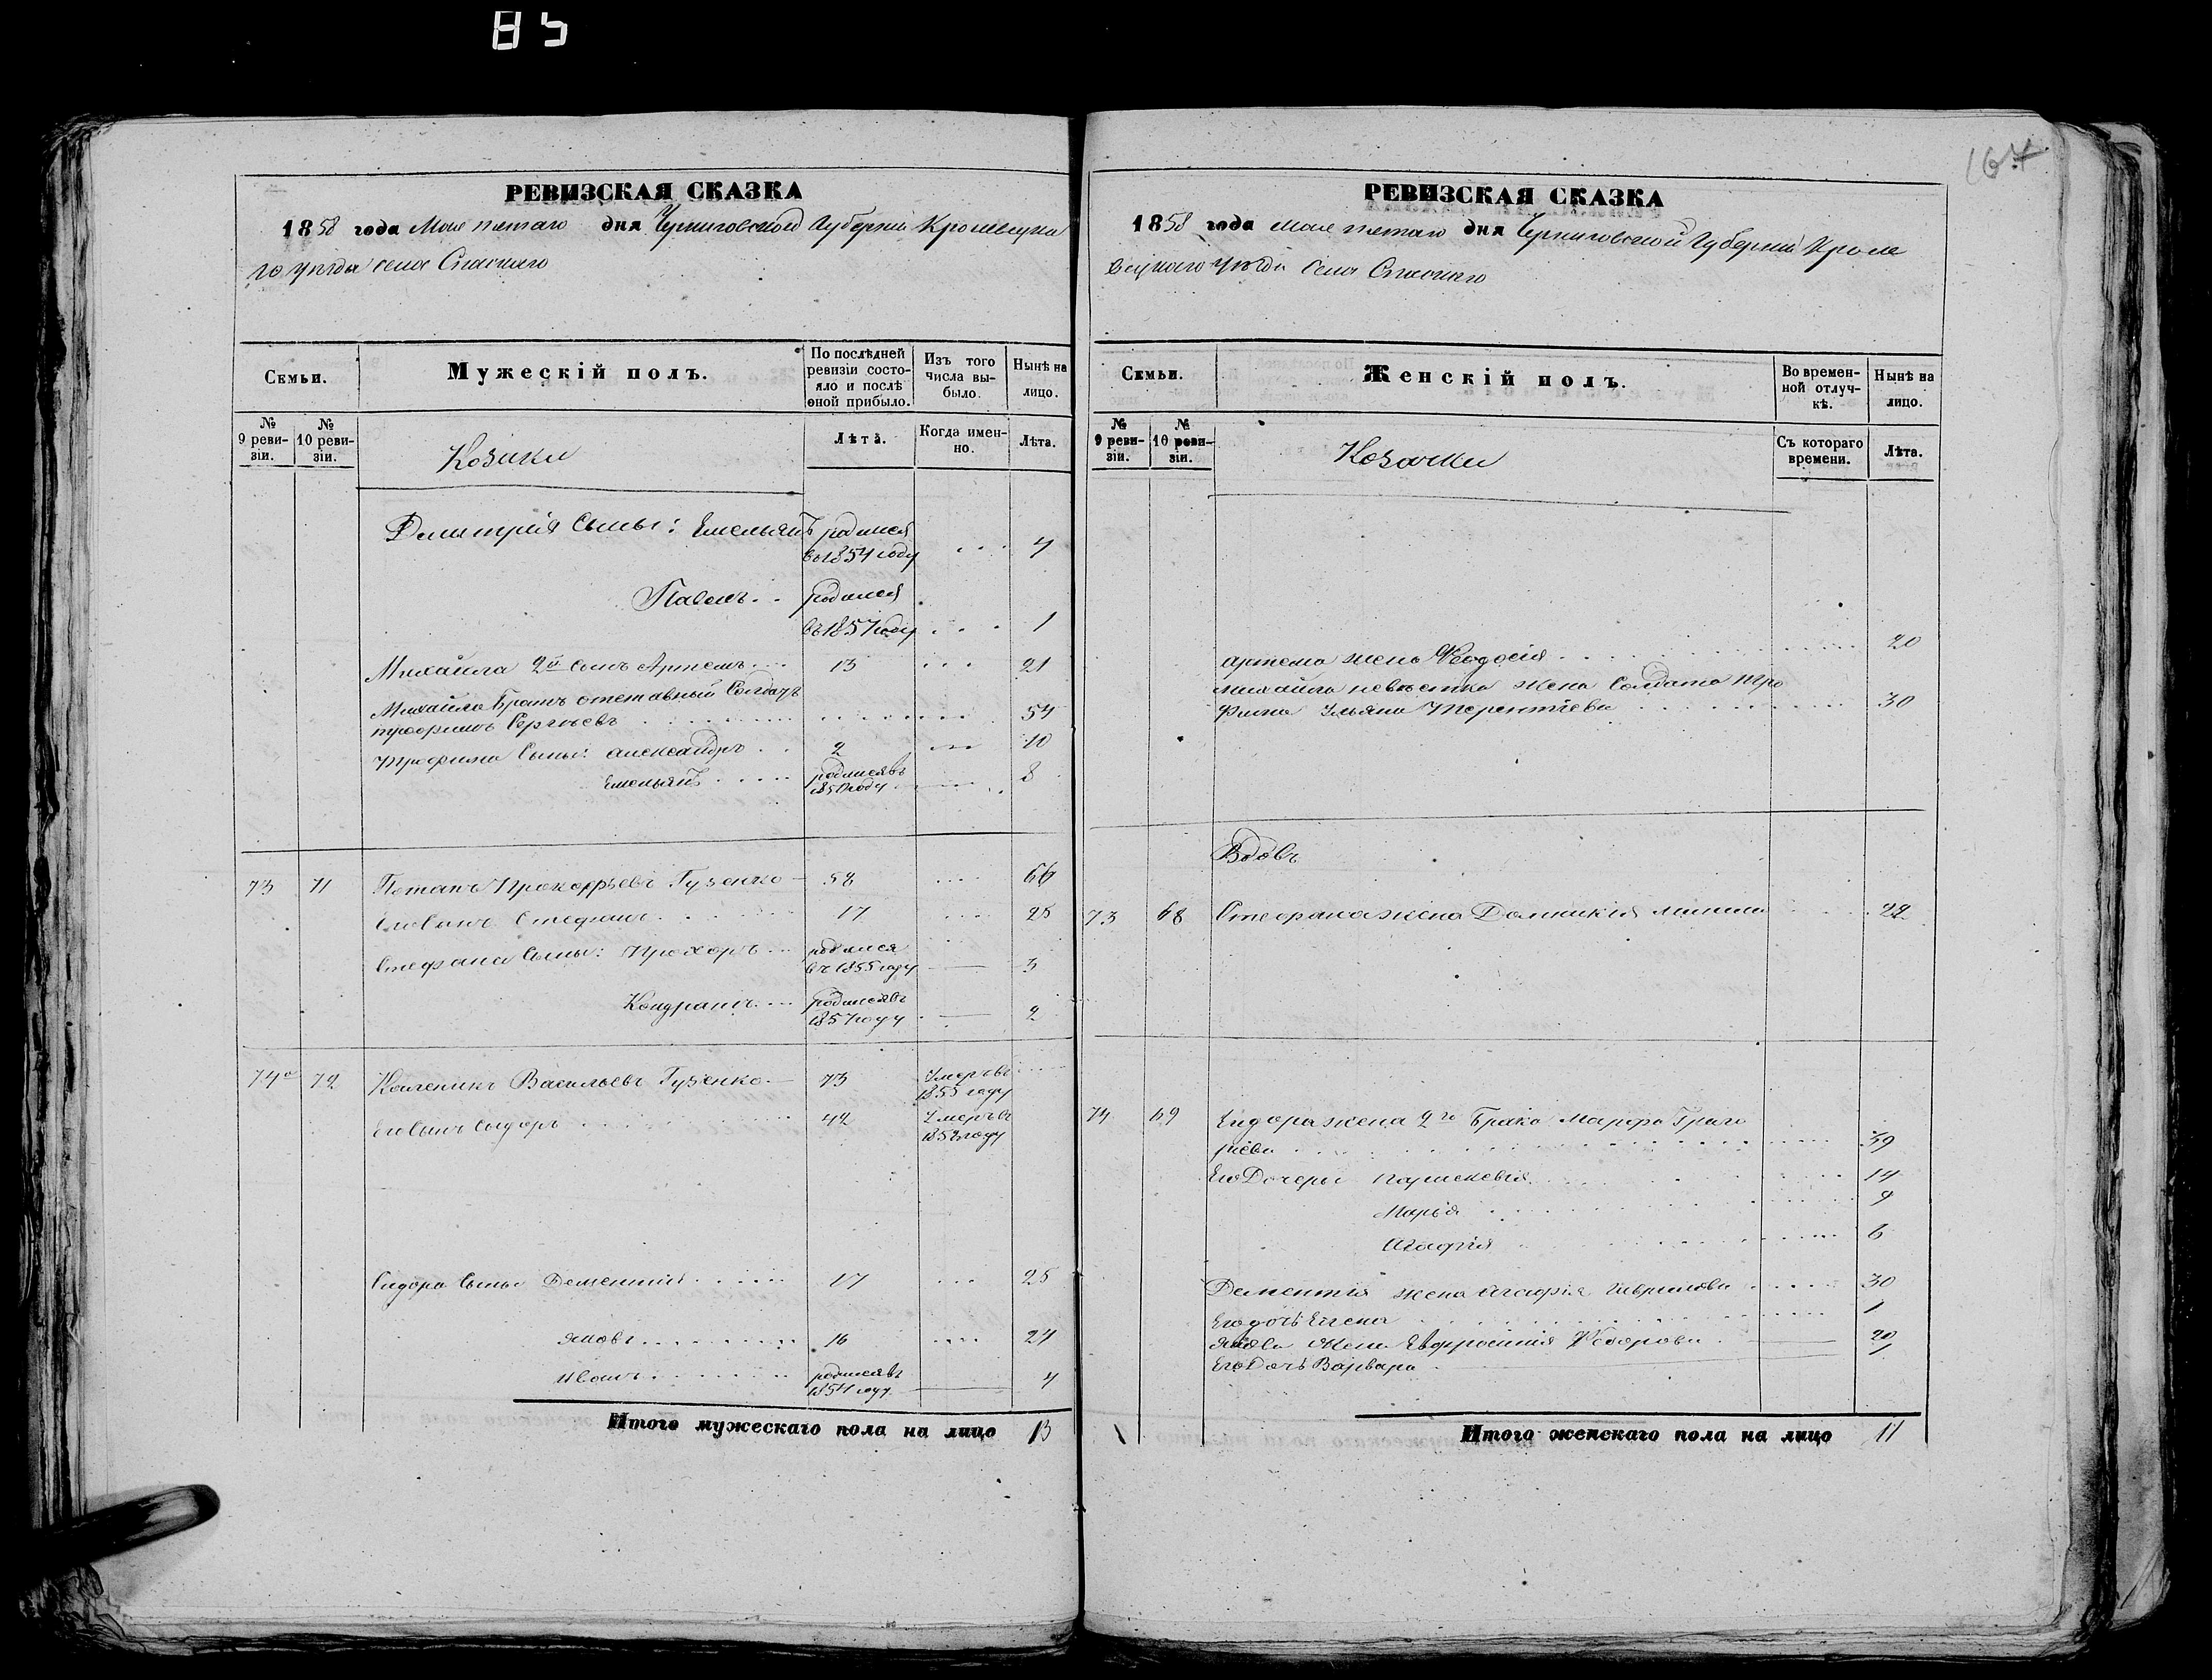 85
167
РЕВИЗСКАЯ СКАЗКА
1858 года Мая пятаго дня Черниговской Губерніи Кролевецка
го уѣзда села Спаскаго
Семьи.
Мужескій полъ.
По послѣдней ревизіи состояло и послѣ оной прибыло.
Изъ того числа выбыло.
Нынѣ на лицо.
№ 9 ревизіи.
№ 10 ревизіи.
Козаки
Лѣта.
Когда именно.
Лѣта.
Дмитрія сыны: Емельянъ родился
въ 1854 году 4
Павелъ родился
въ 1857 году 1
Михайла 2й сынъ Артемъ 13 21
Михайла Братъ отставный Солдатъ
Трофимъ Сергѣевъ 54
Трофима Сыны: Александръ 2 10
Емельянъ родился въ
1850 году 8
73 71 Потапъ Прокофьевъ Гузенко 58 66
Его Сынъ Стефанъ 17 25
Стефана Сыны: Прохоръ родился
въ 1855 году 3
Кондратъ родился въ
1857 году 2
74 72 Каленикъ Васильевъ Гузенко 73 Умеръ въ
1855 году
Его Сынъ Сидоръ 42 Умеръ въ
году
Сидора Сыны Дементій 17 25
Яковъ 16 24
Иванъ родился въ
1854 году 4
Итого мужескаго пола на лицо 13
РЕВИЗСКАЯ СКАЗКА
1858 года мая пятаго дня Черниговской Губерніи Кроле
вецкаго уѣзда Села Спаскаго
Семьи.
Женскій полъ.
Во временной отлучкѣ.
Нынѣ на лицо.
№ 9 ревизіи.
№ 10 ревизіи.
Козачки
Съ котораго времени.
Лѣта.
Артема жена Феодосія 20
Михайла невѣстка жена Солдата Тро
фима Ульяна Терентіева 30
Вдовъ
73 68 Стефана жена Домникія 22
74 69 Сидора жена 2го Брака Марфа Григо
ріева 39
Его Дочери Параскевія 14
Марья 9
Агафія 6
Дементія жена Агафія Гаврилова 30
Его дочь Елена 1
Якова жена Евфросинія Ѳедорова 20
Его Дочь Варвара 1
Итого женскаго пола на лицо 11